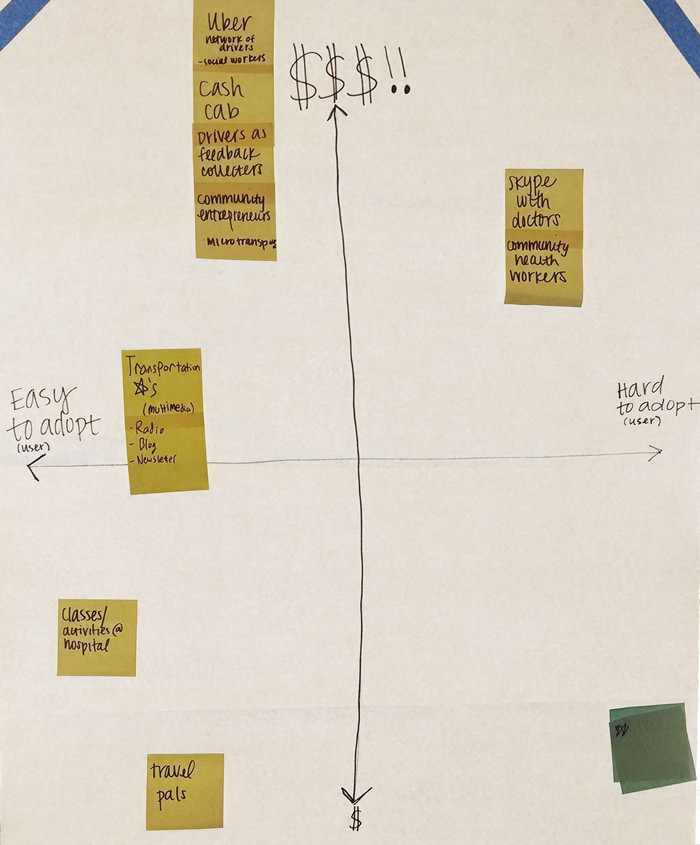 Uber
network of
drivers
-social workers
cash
cab
Drivers as
feedback
collecters
community
entrepreneurs
$$$!!
skype
with
doctors
community
health
workers
Transportation
's
(multimedia)
- Radio
- Blog
- Newsletter
Easy
to adopt
(user)
Hard
to adopt
(user)
classes/
activities@
hospital
travel
pals
$